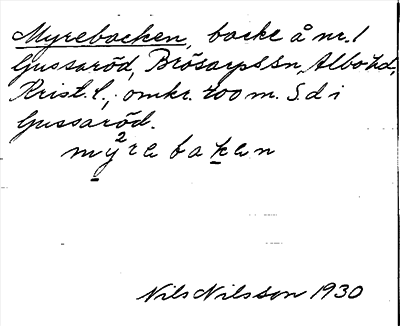 Myrebacken, backe å nr. 1
Gussaröd, Brösarps sn, Albo hd,
Krist. l., omkr. 200 m. S. d i
Gussaröd.
my²re baken
Nils Nilsson 1930